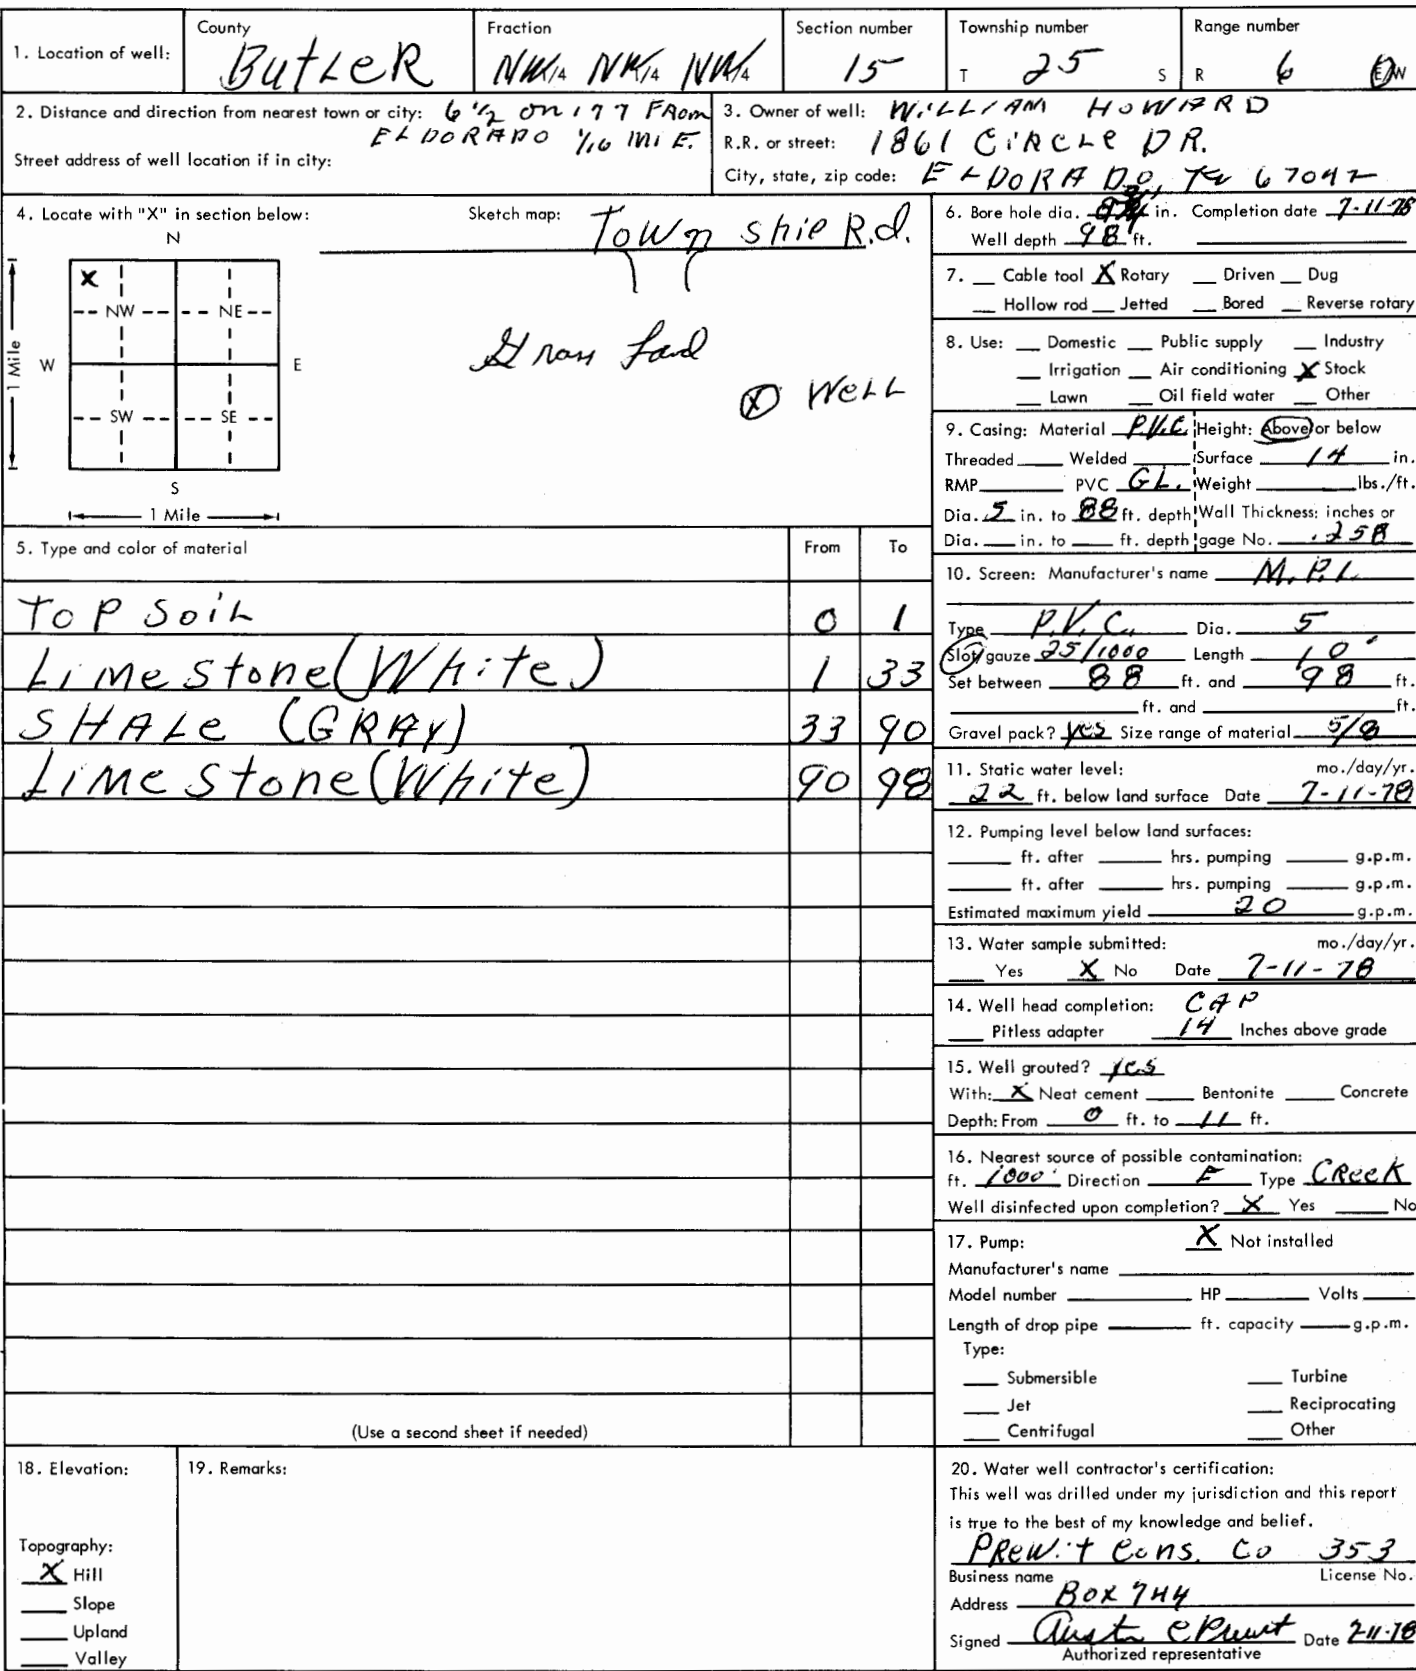 1. Location of well: County Butler Fraction NW1/4 NW1/4 NW1/4 Section number 15 Township number T 25 S Range number R 6 E/W
2. Distance and direction from nearest town or city: 6 1/2 on 177 FROM
ELDORADO 1/10 MI E.
Street address of well location if in city:
3. Owner of well: WILLIAM HOWARD
R.R. or street: 1861 CIRCLE DR.
City, state, zip code: ELDORADO, 67042
4. Locate with "X" in section below:
N
X
NW NE
W E
SW SE
S
1 Mile
1 Mile
Sketch map: Town ship R.d.
Grass Land
X WELL
5. Type and color of material From To
TOP SOIL 0 1
Lime stone (White) 1 33
SHALE (GRAY) 33 90
Lime stone (White) 90 98
(Use a second sheet if needed)
6. Bore hole dia. in. Completion date 7-11-78
Well depth 98 ft.
7. Cable tool X Rotary Driven Dug
Hollow rod Jetted Bored Reverse rotary
8. Use: Domestic Public supply Industry
Irrigation Air conditioning X Stock
Lawn Oil field water Other
9. Casing: Material P.V.C. Height: Above or below
Threaded Welded Surface 14 in.
RMP PVC GL. Weight lbs./ft.
Dia. 5 in. to 88 ft. depth Wall Thickness: inches or
Dia. in. to ft. depth gage No. .258
10. Screen: Manufacturer's name M.P.I.
Type P.V.C. Dia. 5
Slot/gauze 25/1000 Length 10'
Set between 88 ft. and 98 ft.
ft. and ft.
Gravel pack? yes Size range of material 5/8
11. Static water level: mo./day/yr.
22 ft. below land surface Date 7-11-78
12. Pumping level below land surfaces:
ft. after hrs. pumping g.p.m.
ft. after hrs. pumping g.p.m.
Estimated maximum yield 20 g.p.m.
13. Water sample submitted: mo./day/yr.
Yes X No Date 7-11-78
14. Well head completion: CAP
Pitless adapter 14 Inches above grade
15. Well grouted? yes
With: X Neat cement Bentonite Concrete
Depth: From 0 ft. to 11 ft.
16. Nearest source of possible contamination:
ft. 1000' Direction E Type CREEK
Well disinfected upon completion? X Yes No
17. Pump: X Not installed
Manufacturer's name
Model number HP Volts
Length of drop pipe ft. capacity g.p.m.
Type:
Submersible Turbine
Jet Reciprocating
Centrifugal Other
18. Elevation:
Topography:
X Hill
Slope
Upland
Valley
19. Remarks:
20. Water well contractor's certification:
This well was drilled under my jurisdiction and this report
is true to the best of my knowledge and belief.
PREWit Cons. Co 353
Business name License No.
Address Box 744
Signed Date
Authorized representative